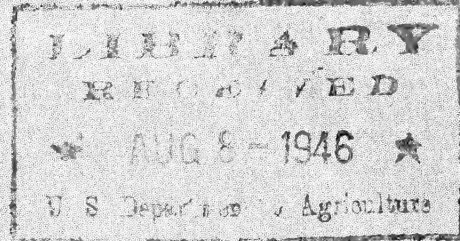 LIBRARY
RECEIVED
★ AUG 8 - 1946 ★
U S Department of Agriculture